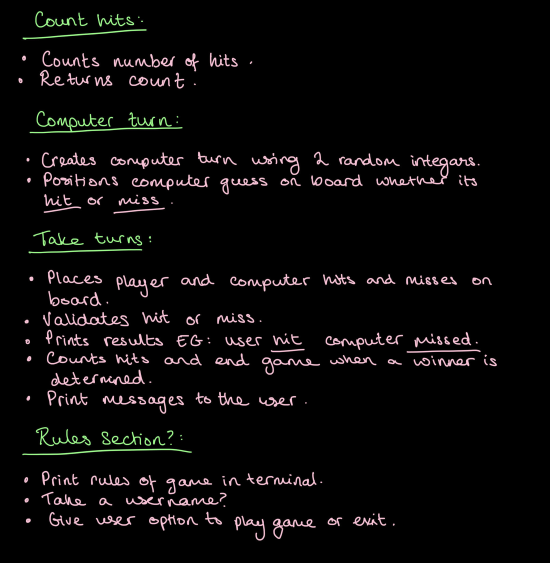 Count hits:
• Counts number of hits.
• Returns count.
Computer turn:
• Creates computer turn using 2 random integars.
• Positions computer guess on board whether its
hit or miss.
Take turns:
• Places player and computer hits and misses on
board.
• Validates hit or miss.
• Prints results EG: user hit computer missed.
• Counts hits and end game when a winner is
determined.
• Print messages to the user.
Rules Section?:
• Print rules of game in terminal.
• Take a username?
• Give user option to play game or exit.